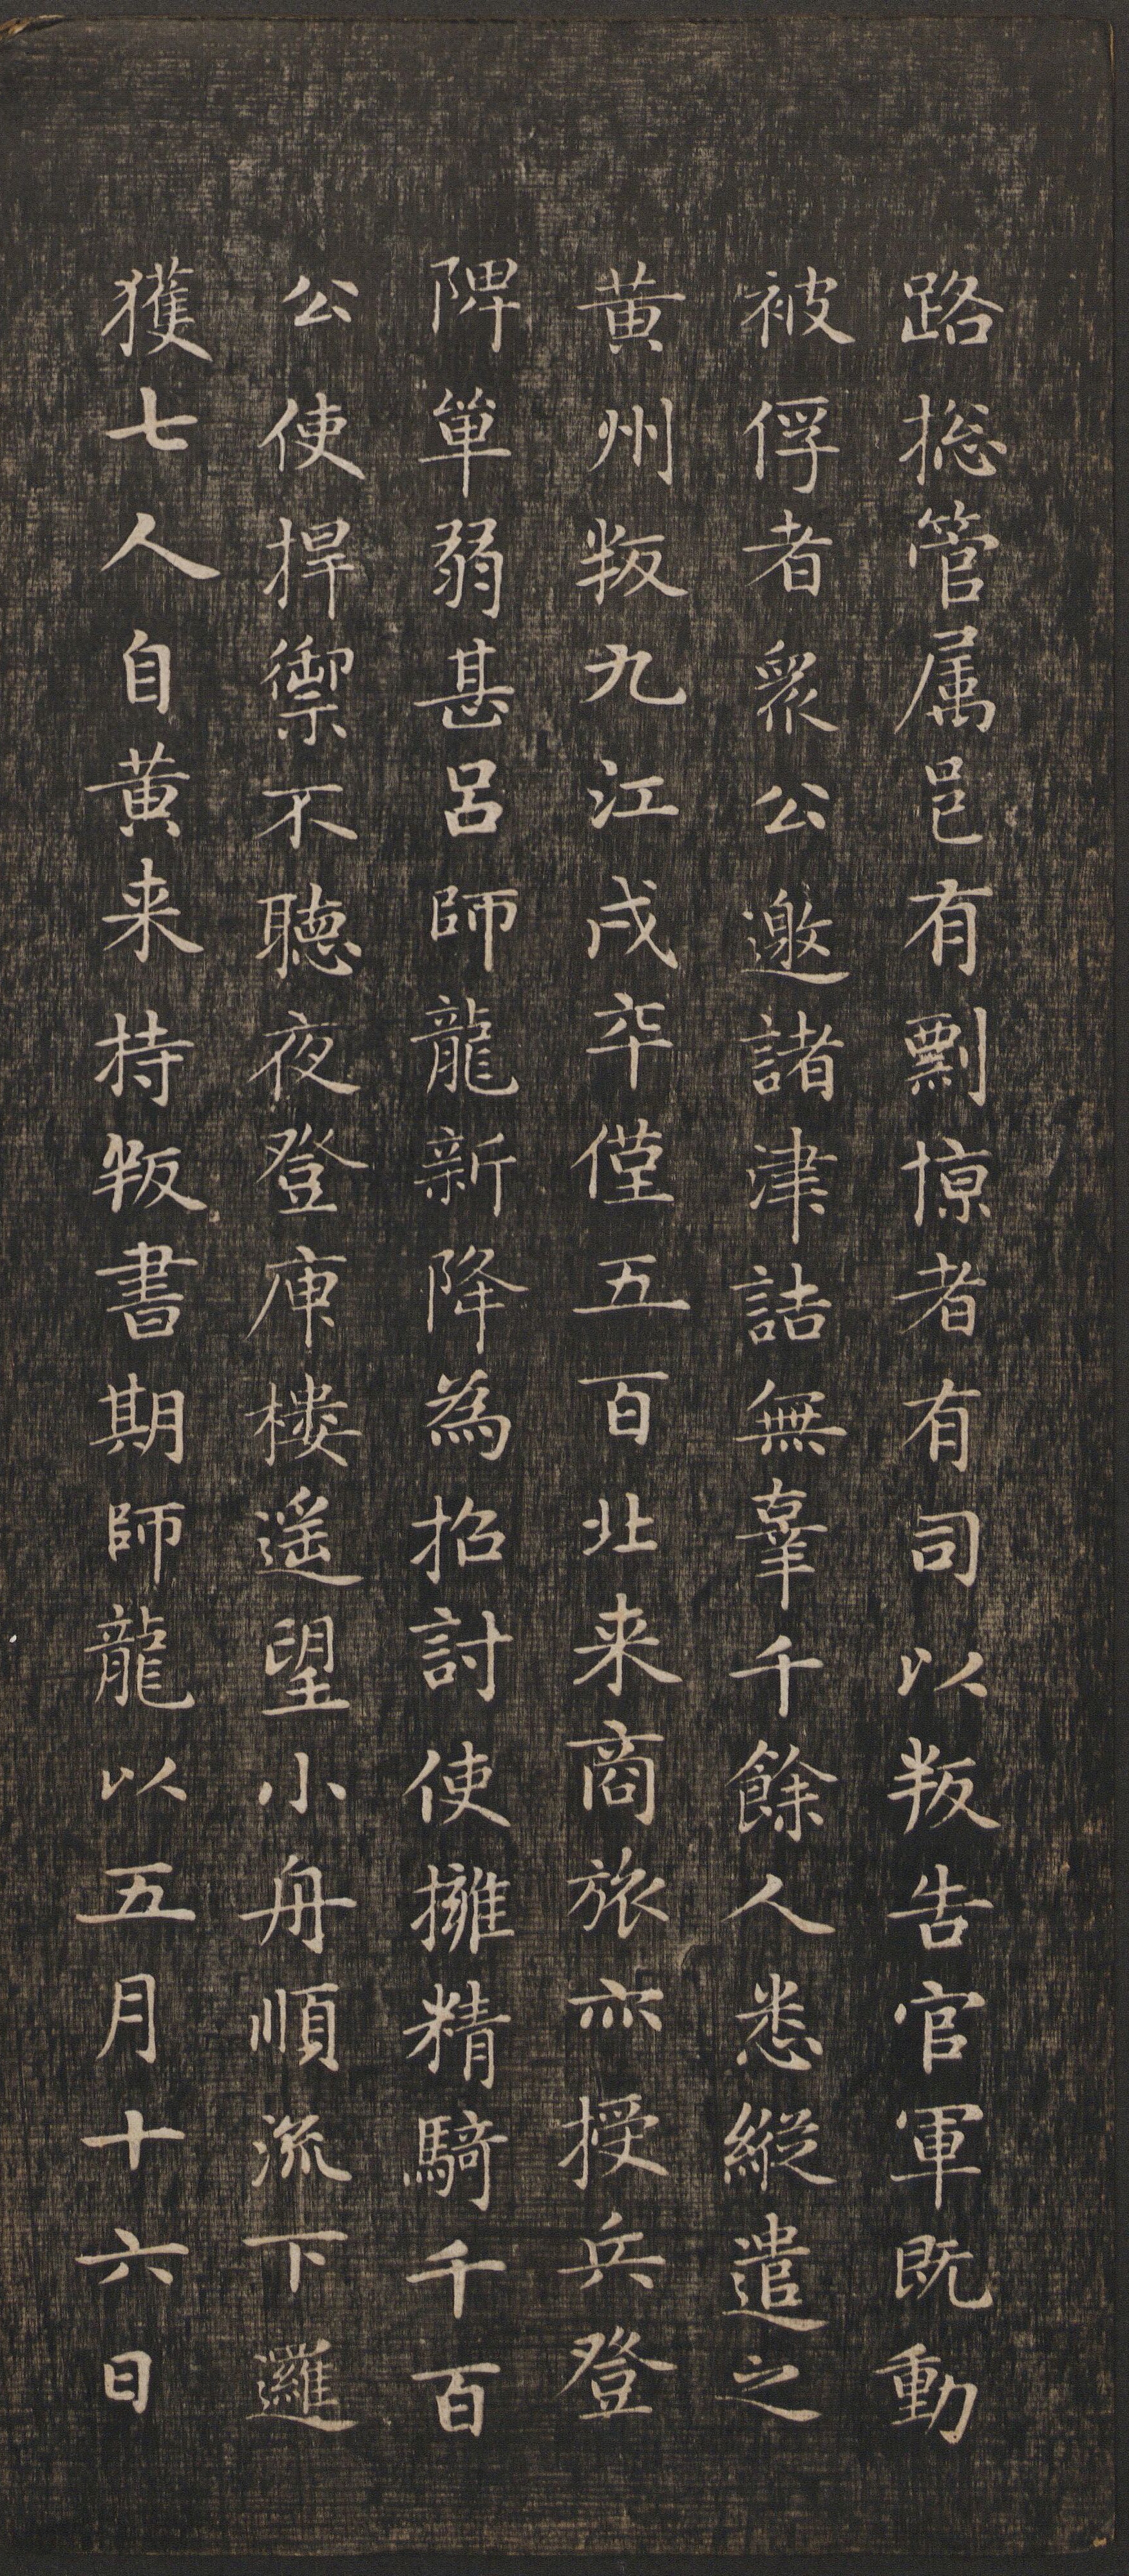 路捴管属邑有剽掠者有司以叛告官軍既動
被俘者衆公邀諸津詰無辜千餘人悉縱遣之
黄州叛九江戍卒僅五百北来商旅亦授兵登
陴單弱甚呂師龍新降為招討使擁精騎千百
公使捍禦不聽夜登庾樓遥望小舟順流下邏
獲七人自黄来持叛書期師龍以五月十六日